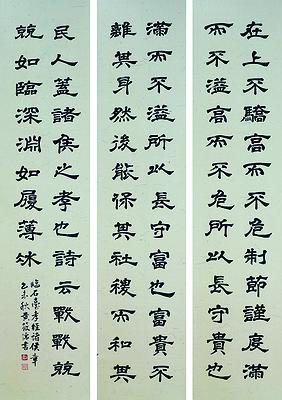 在上不驕高而不危制節謹度滿
而不溢高而不危所以長守貴也
滿而不溢所以長守富也富貴不
離其身然後能保其社稷而和其
民人蓋諸侯之孝也詩云戰戰兢
兢如臨深淵如履薄冰
臨石臺孝經諸侯章
乙未秋黃書